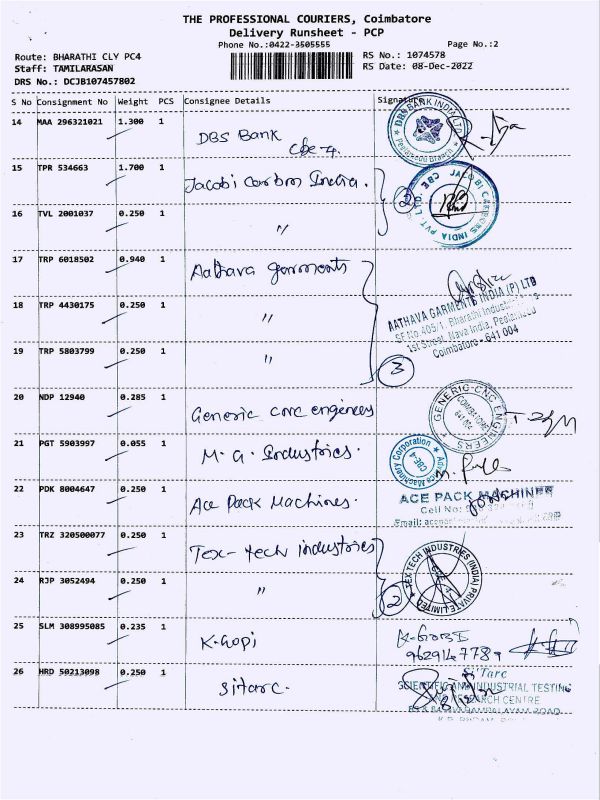 THE PROFESSIONAL COURIERS, Coimbatore
Delivery Runsheet - PCP
Phone No.:0422-3505555 Page No.:2
Route: BHARATHI CLY PC4 RS No.: 1074578
Staff: TAMILARASAN RS Date: 08-Dec-2022
DRS No.: DCJB107457802
S No Consignment No Weight PCS Consignee Details Signature
14 MAA 296321021 1.300 1
DBS Bank
Cbe-4.
DBS BANK INDIA LTD
Peelamedu Branch
15 TPR 534663 1.700 1
Jacobi Carbon India.
2
JACOBI CARBONS INDIA PVT. LTD. CBE
16 TVL 2001037 0.250 1
"
17 TRP 6018502 0.940 1
Aathava garments
AATHAVA GARMENTS INDIA (P) LTD
SF No 405/1, Bharathi
1st Street, Nava India, Peelamedu
Coimbatore - 641 004
18 TRP 4430175 0.250 1
"
19 TRP 5803799 0.250 1
"
3
20 NDP 12940 0.285 1
Generic cnc engineers
GENERIC CNC ENGINEERS
COIMBATORE
641 004
21 PGT 5903997 0.055 1
M.G. Industries.
Machinery Corporation
CBE-4
22 PDK 8004647 0.250 1
Ace Pack Machines.
ACE PACK MACHINES
Cell No:
Email:
23 TRZ 320500077 0.250 1
Tex-tech industries
TEX TECH INDUSTRIES (INDIA) PRIVATE LIMITED
24 RJP 3052494 0.250 1
"
2
25 SLM 308995085 0.235 1
K-Gopi
K-GOBI
9629147789
26 HRD 50213098 0.250 1
Sitarc.
Si'Tarc
SCIENTIFIC AND INDUSTRIAL TESTING
AND RESEARCH CENTRE
ROAD